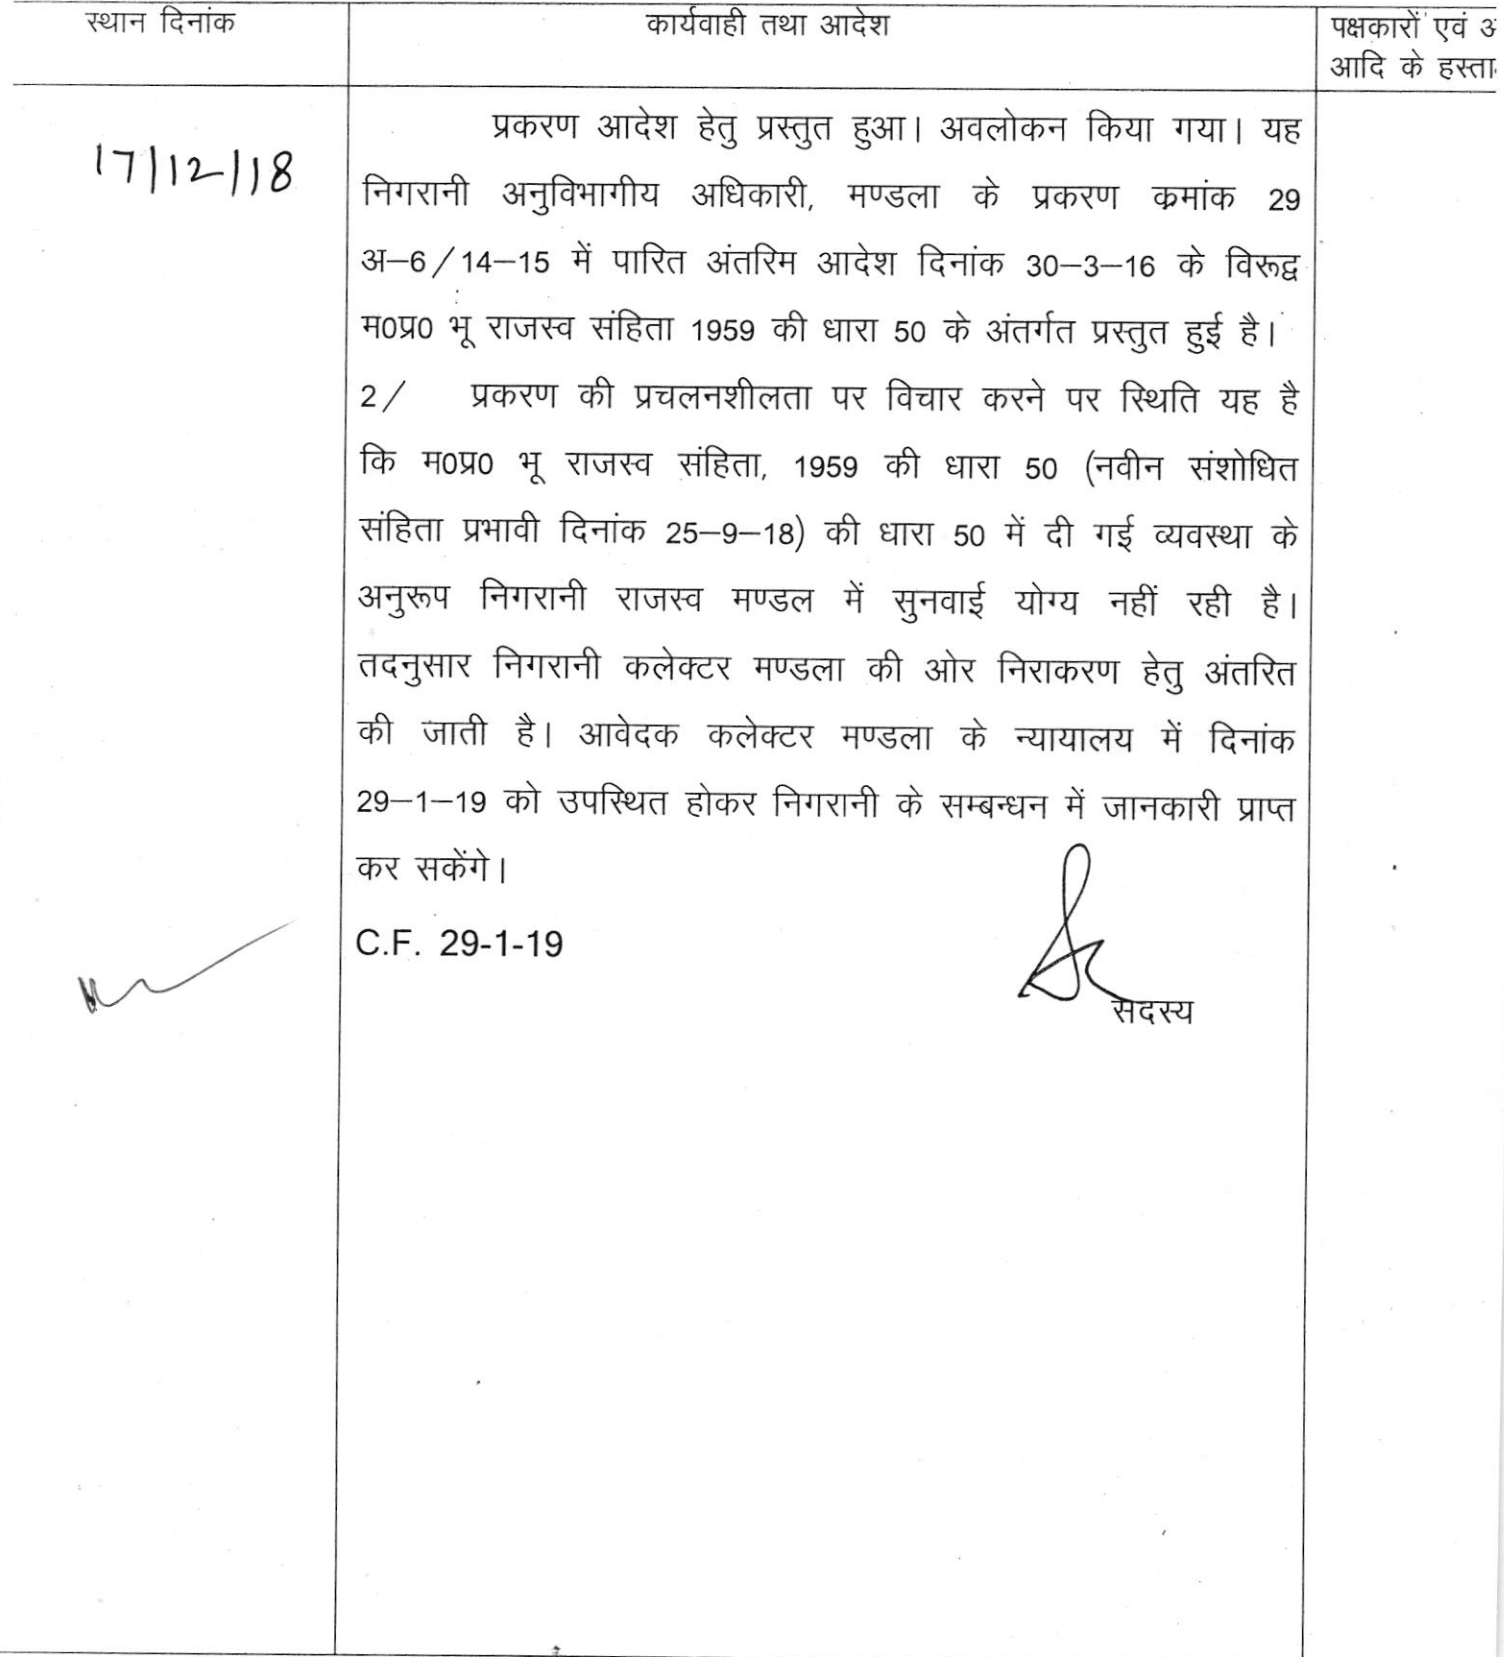 स्थान दिनांक
कार्यवाही तथा आदेश
पक्षकारों एवं
आदि के
17/12/18
प्रकरण आदेश हेतु प्रस्तुत हुआ। अवलोकन किया गया। यह
निगरानी अनुविभागीय अधिकारी, मण्डला के प्रकरण क्रमांक 29
अ–6/14–15 में पारित अंतरिम आदेश दिनांक 30–3–16 के विरूद्व
म0प्र0 भू राजस्व संहिता 1959 की धारा 50 के अंतर्गत प्रस्तुत हुई है।
2/ प्रकरण की प्रचलनशीलता पर विचार करने पर स्थिति यह है
कि म0प्र0 भू राजस्व संहिता, 1959 की धारा 50 (नवीन संशोधित
संहिता प्रभावी दिनांक 25–9–18) की धारा 50 में दी गई व्यवस्था के
अनुरूप निगरानी राजस्व मण्डल में सुनवाई योग्य नहीं रही है।
तदनुसार निगरानी कलेक्टर मण्डला की ओर निराकरण हेतु अंतरित
की जाती है। आवेदक कलेक्टर मण्डला के न्यायालय में दिनांक
29–1–19 को उपस्थित होकर निगरानी के सम्बन्धन में जानकारी प्राप्त
कर सकेंगे।
C.F. 29-1-19
सदस्य